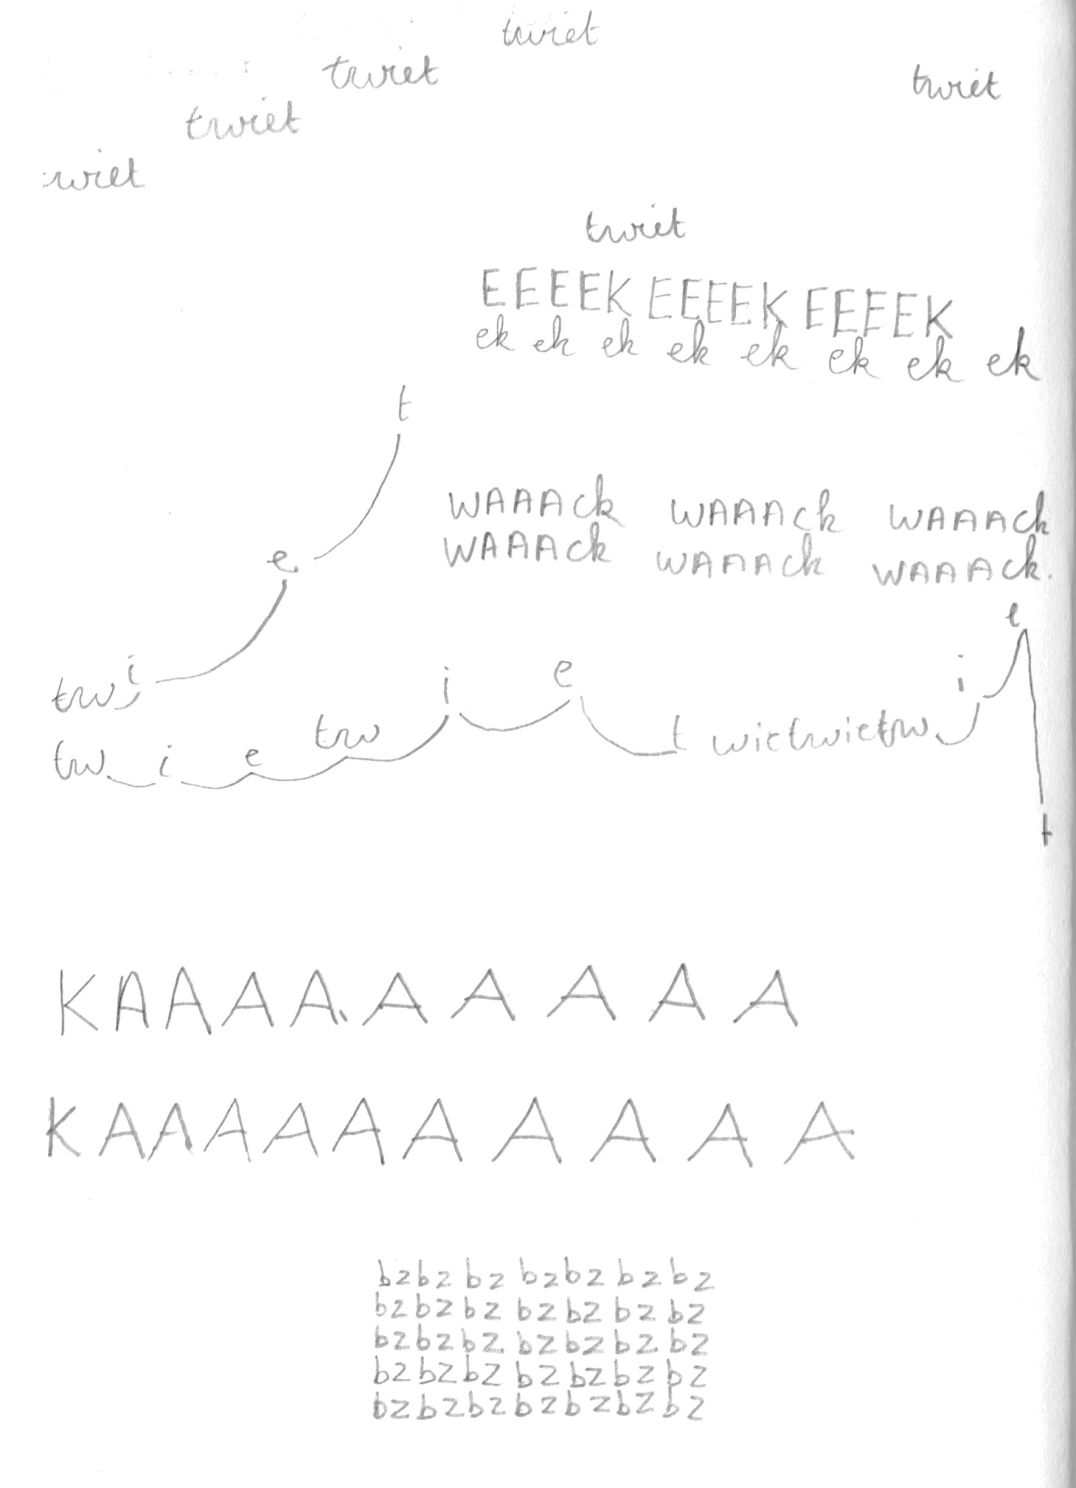 twiet
twiet
twiet
twiet
wiet
twiet
EEEEK EEEEK EEEEK
ek ek ek ek ek ek ek ek
t
WAAAck WAAAck WAAAck
WAAAck WAAAck WAAAck.
e
twi
e
i e tw i e t wietwietw i t
tw
KAAAAAAAAA
KAAAAAAAAAA
bzbz bz bzbz bz bz
bzbz bz bz bz bz bz
bzbzbz bzbz bz bz
bz bzbz bz bz bz bz
bz bzbz bz bz bz bz